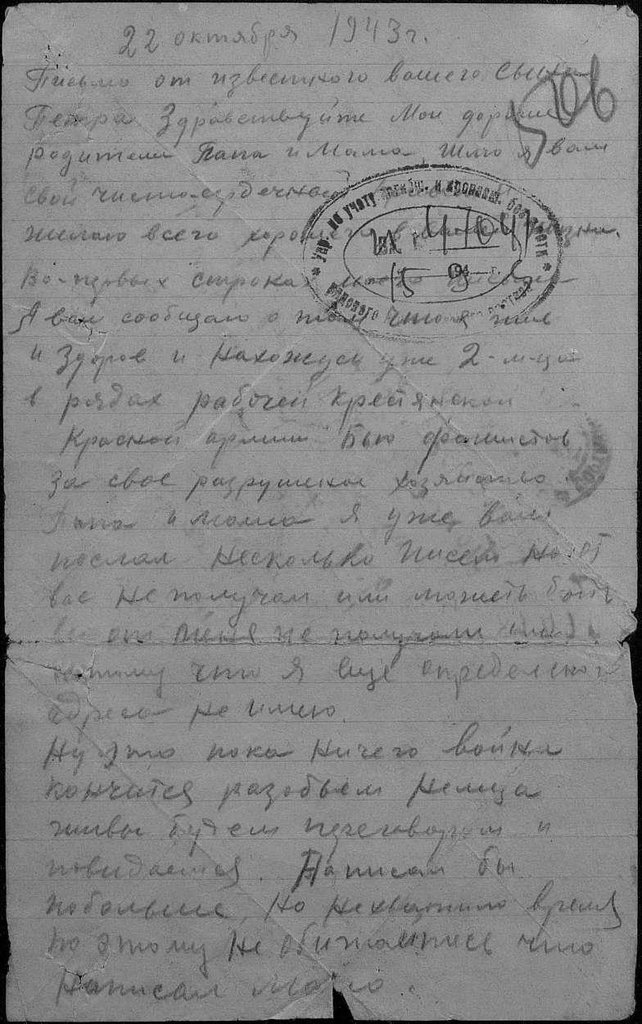 22 октября 1943 г.
Письмо от известного вашего сына
Петра Здравствуйте Мои дорогие
родители Папа и Мама Шлю я вам
свой чисто-сердечной
желаю всего хорошего в
Во-первых строках
Я вам сообщаю о том что я жив
и Здоров и Нахожусь уже 2-м-ца
в рядах рабочей Крестянской
Красной армии Бью фашистов
за свое разрушеное хозяйство
Папа и мама Я уже вам
послал Несколько Писем Но от
вас Не получал или можеть быть
вы от меня не получали
потому что Я еще определеного
адреса не имею.
Ну это пока Ничего война
кончится разобъем Немца
живы будем переговорим и
повидаемся. Написал бы
побольше, Но Нехватило время
по этому Не обижайтись что
Написал мало.
506
Упр. по учету
вх. № 41041
15 9